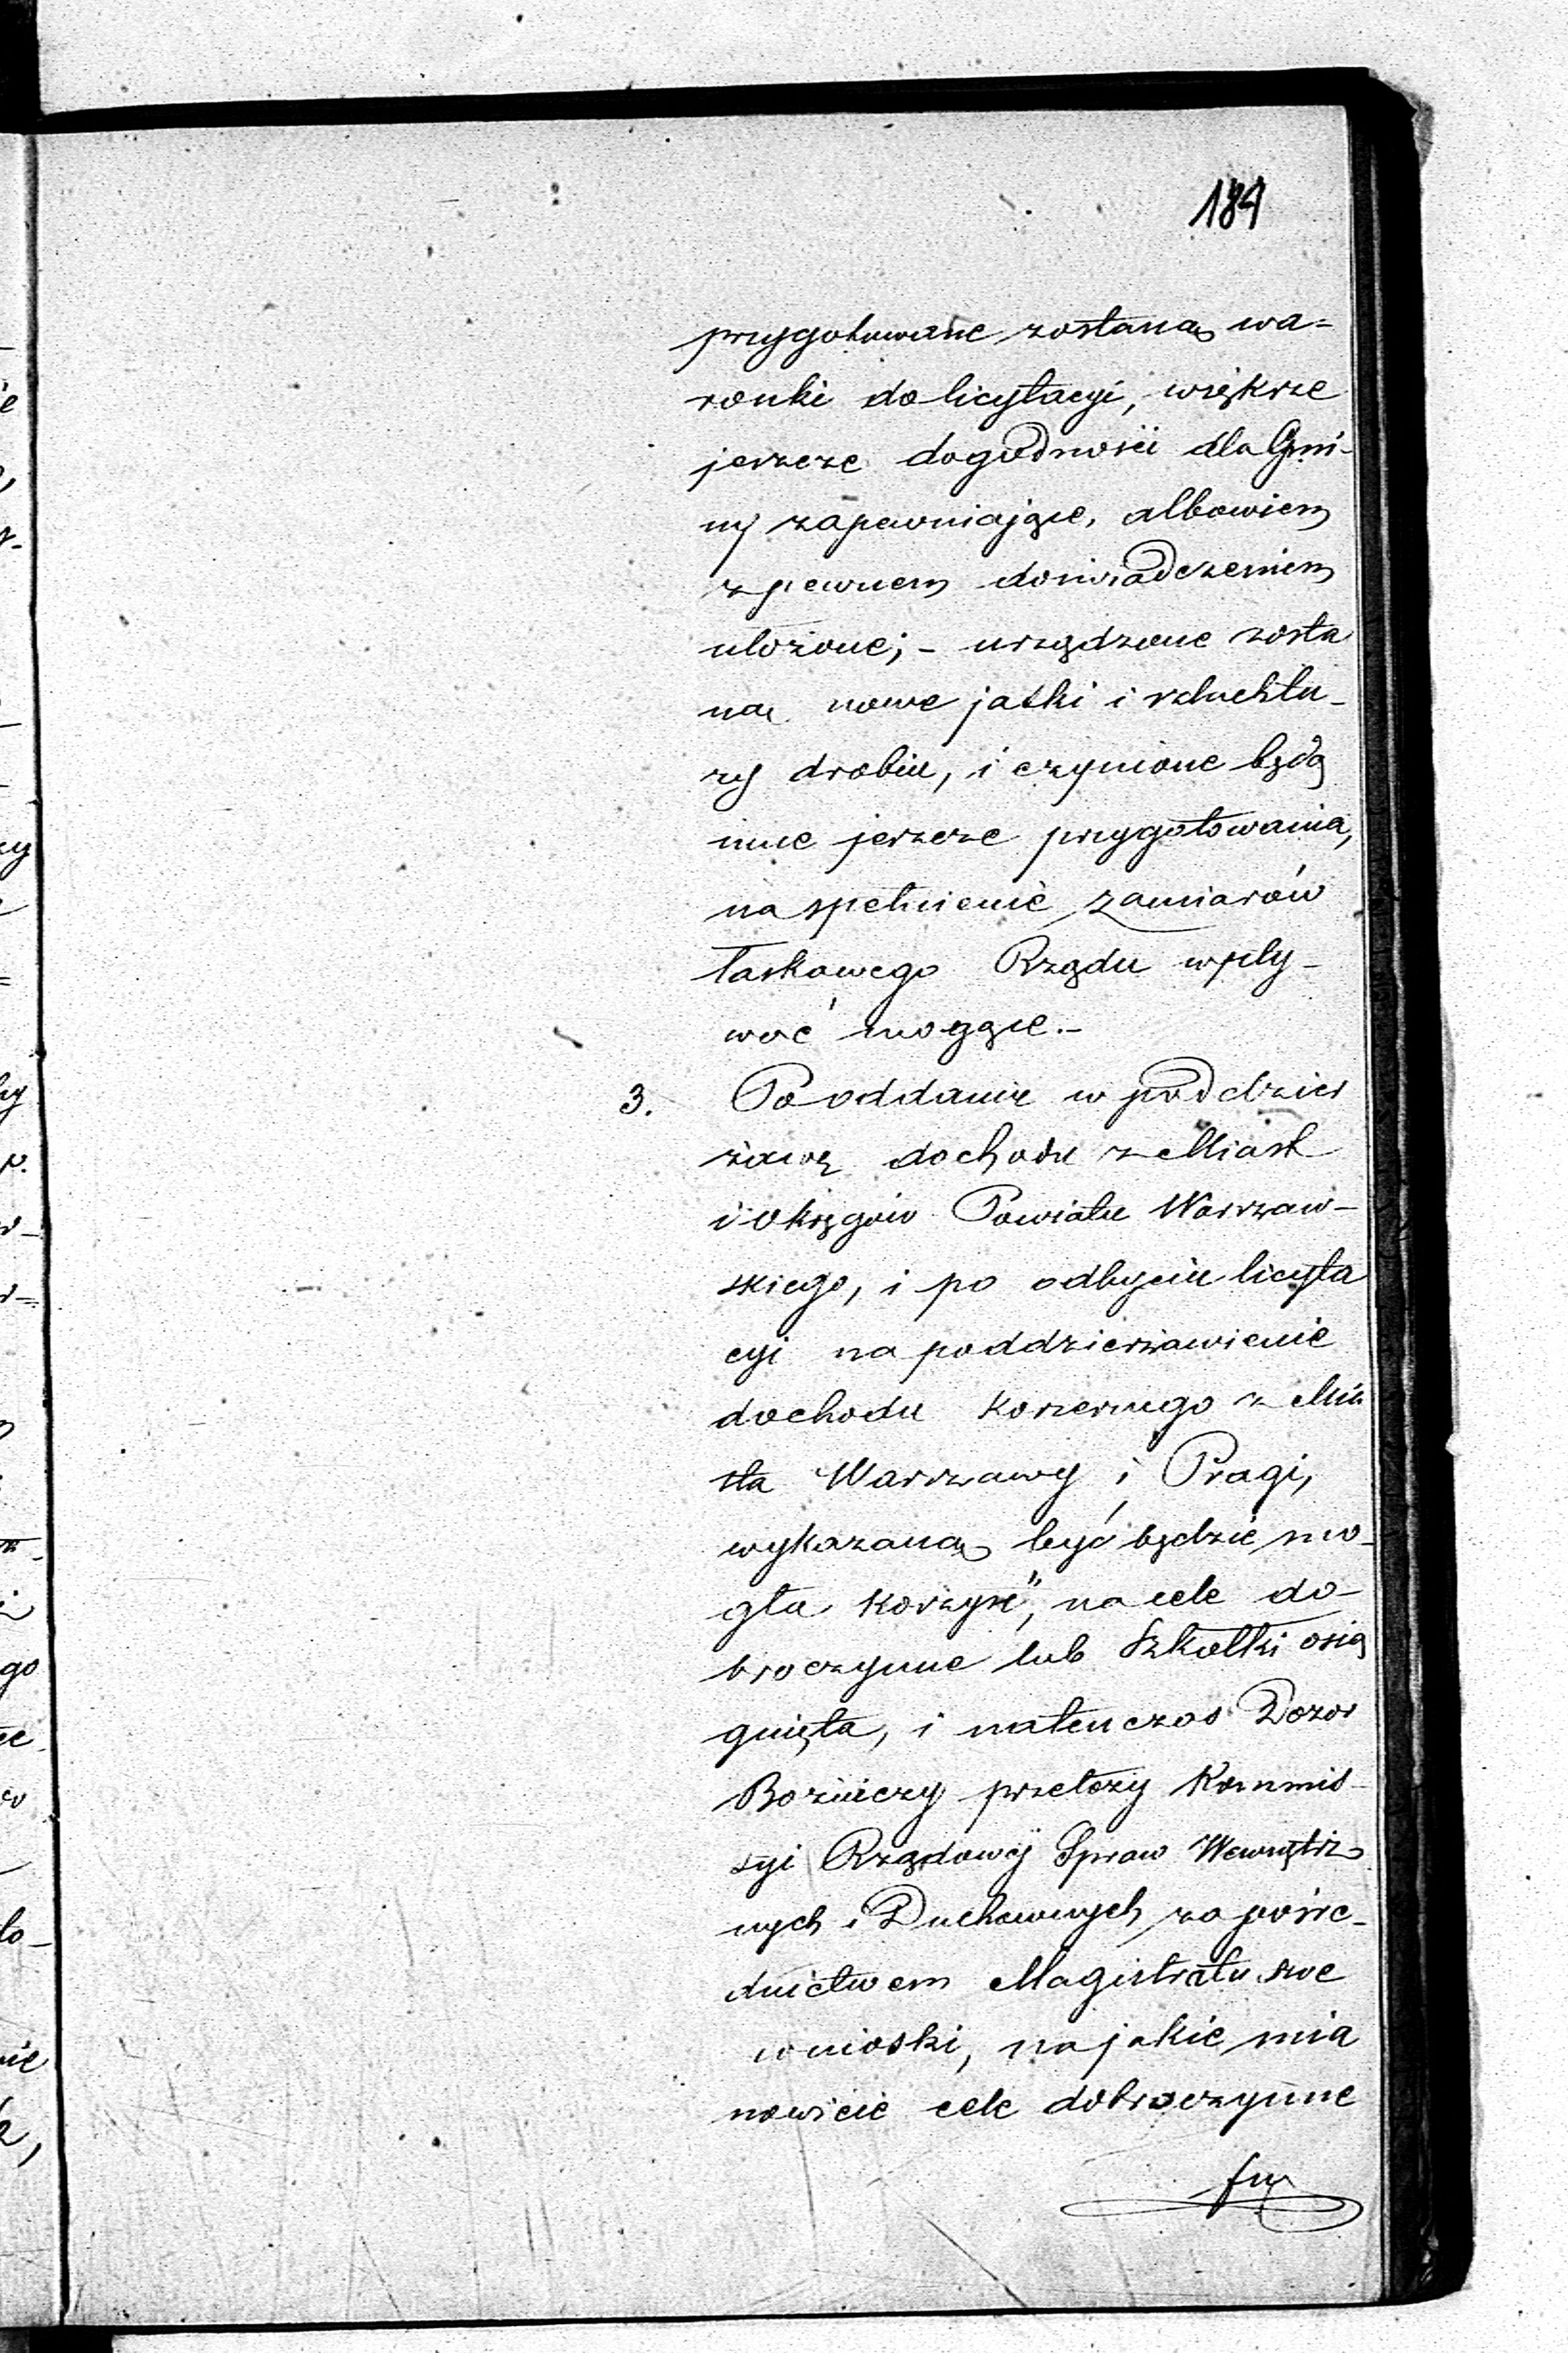 184
przygotowane zostaną wa=
ronki do licytacyi, większe
jeszcze dogodności dla Gmi-
ny zapewniające, albowiem
z pewnem doświadczeniem
ułożone; - urządzone zosta
ną nowe jatki i szluchtu-
zy drobiu, i czynione będą
inne jeszcze przygotowania,
na spełnienie zamiarów
łaskawego Rządu wpły-
wać mogące.-
3. Po oddaniu w poddzier
żawę dochodu z Miast
i Okręgów Powiatu Warszaw-
skiego, i po odbyciu licyta
cyi na poddzierżawienie
dochodu koszernego z Mia
sta Warszawy i Pragi,
wykazaną być będzie mo-
gła korzyść, na cele do-
broczynne lub Szkółki osią
gnięta, i natenczas Dozor
Bożniczy przełoży Kommis-
syi Rządowéj Spraw Wewnętrz-
nych i Duchownych, za pośre-
dnictwem Magistratu swe
wnioski, na jakie mia
nowicie cele dobroczynne